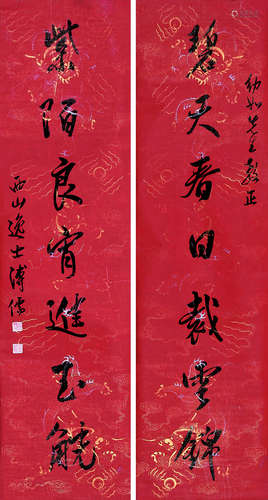 幼如先生教正
碧天春日裁雲錦
紫陌良宵進玉觥
西山逸士溥儒